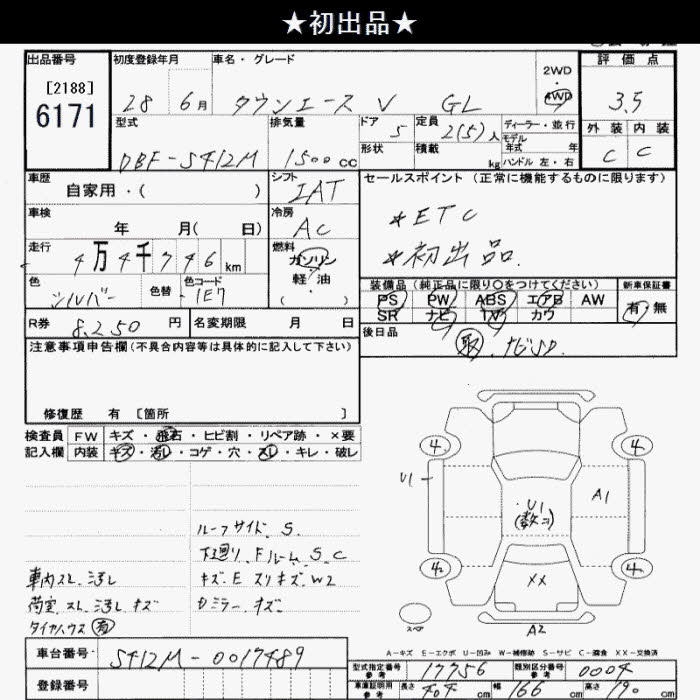 ★初出品★
出品番号
[2188]
6171
初度登録年月
28 6月
車名・グレード
タウンエース V GL
2WD
・
4WD
評価点
3.5
外装 内装
C C
型式
DBF-S412M
排気量
1500cc
ドア
5
形状
定員
2(5)人
積載
kg
ディーラー・並行
モデル年式 年
ハンドル 左・右
車歴
自家用・( )
シフト
IAT
車検
年 月( 日)
冷房
AC
走行
4万4千746km
燃料
ガソリン
軽・油
色
シルバー
色替
色コード
1E7
R券
8.250円
名変期限 月 日
セールスポイント (正常に機能するものに限ります)
*ETC
*初出品.
装備品(純正品に限り○をつけてください)
PS PW ABS エアB AW
SR ナビ TV カワ
新車保証書
有・無
後日品
取.ナビSD.
注意事項申告欄(不具合内容等は具体的に記入して下さい)
修復歴 有 [箇所 ]
検査員記入欄
FW キズ・飛石・ヒビ割・リペア跡・×要
内装 キズ・汚レ・コゲ・穴・スレ・キレ・破レ
ルーフサイド.S.
下廻り.Fルーム.S.C
車内スレ.汚レ
キズ.E スリキズ.W2
荷室.スレ.汚レ.キズ
Dミラー.キズ.
タイヤハウス 有
4 4
U1
U1
(数コ)
A1
4 4
XX
スペア
A2
A-キズ E-エクボ U-凹み W-補修跡 S-サビ C-腐食 XX-交換済
車台番号
S412M-0017489
登録番号
型式指定番号
参考
17756
類別区分番号
参考
0004
車庫証明用
参考
長さ 404cm
幅 166cm
高さ 190cm